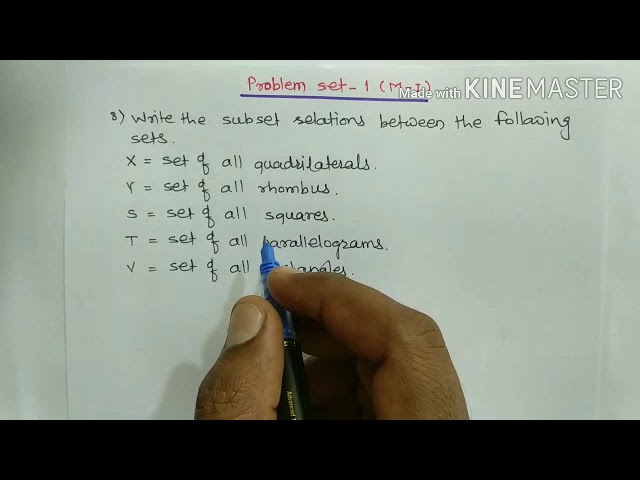 Problem set-1 (M-I)
Made with KINEMASTER
8) Write the subset relations between the following
sets.
X = set of all quadrilaterals.
R = set of all rhombus.
S = set of all squares.
T = set of all parallelograms.
V = set of all